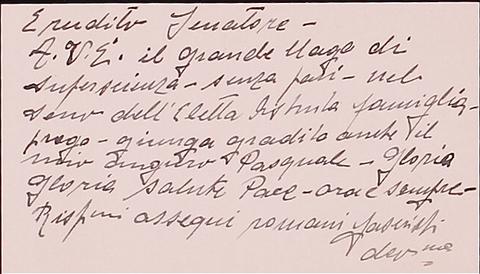 Erudito Senatore -
A.V.E. il grande Mago di
superscienza - senza pari - nel
seno dell'Eletta famiglia -
prego - giunga gradito anche il
mio augurio Pasquale - Gloria
Gloria salute Pace - ora e sempre -
ossequi romani fascisti
dev.ma